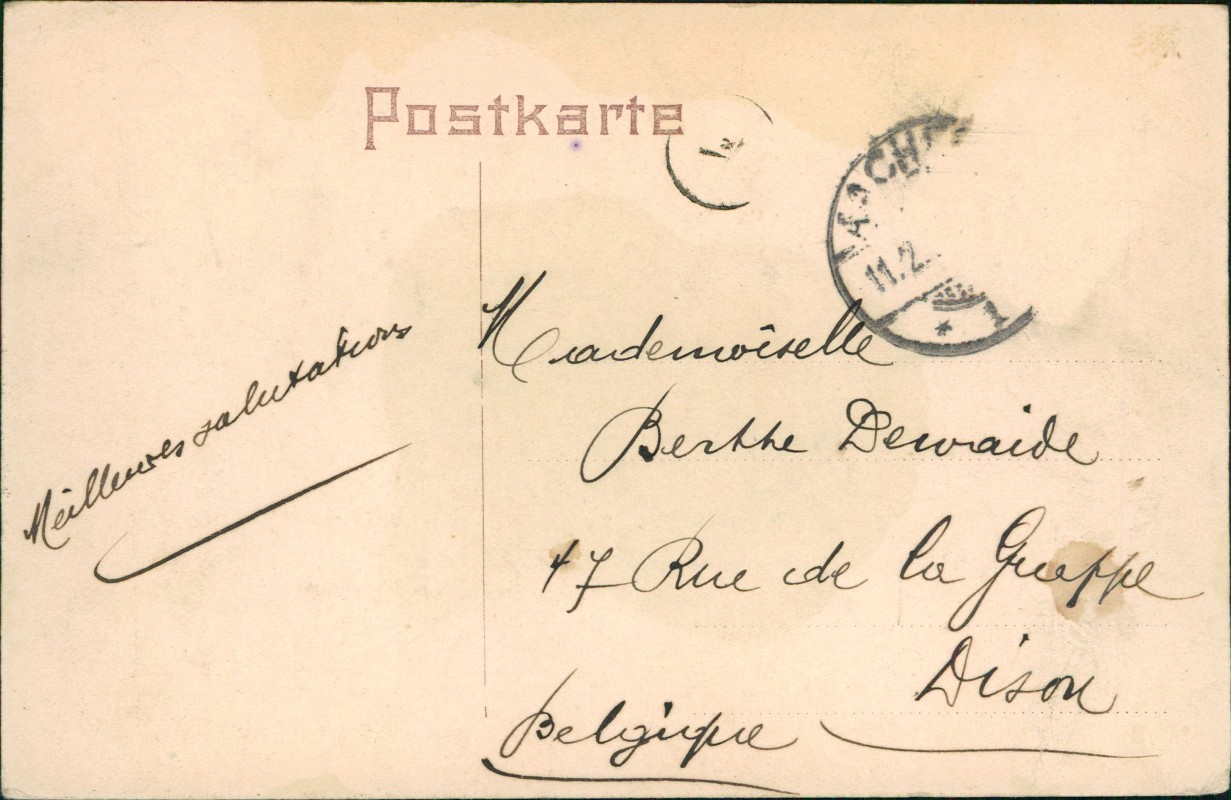 Postkarte
AACHEN
11.2.
Meilleures salutations
Mademoiselle
Berthe Dewaide
47 Rue de la Grappe
Dison
Belgique